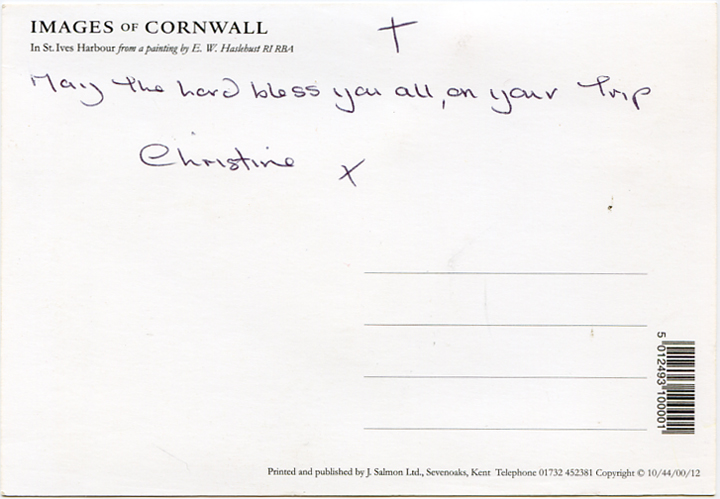 IMAGES OF CORNWALL
In St. Ives Harbour from a painting by E. W. Haslehust RI RBA
May the Lord bless you all, on your Trip
Christine x
5 012493 100001
Printed and published by J. Salmon Ltd., Sevenoaks, Kent Telephone 01732 452381 Copyright © 10/44/00/12